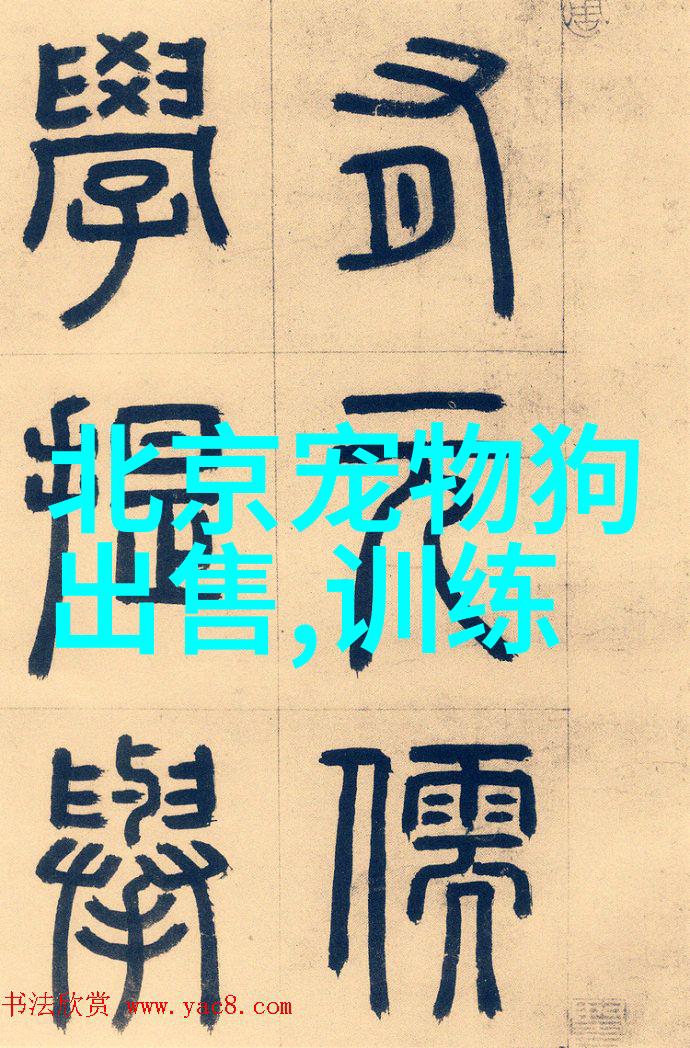 有元儒
學提舉
北京宠物狗
出售,训练
书法欣赏 www.yac8.com